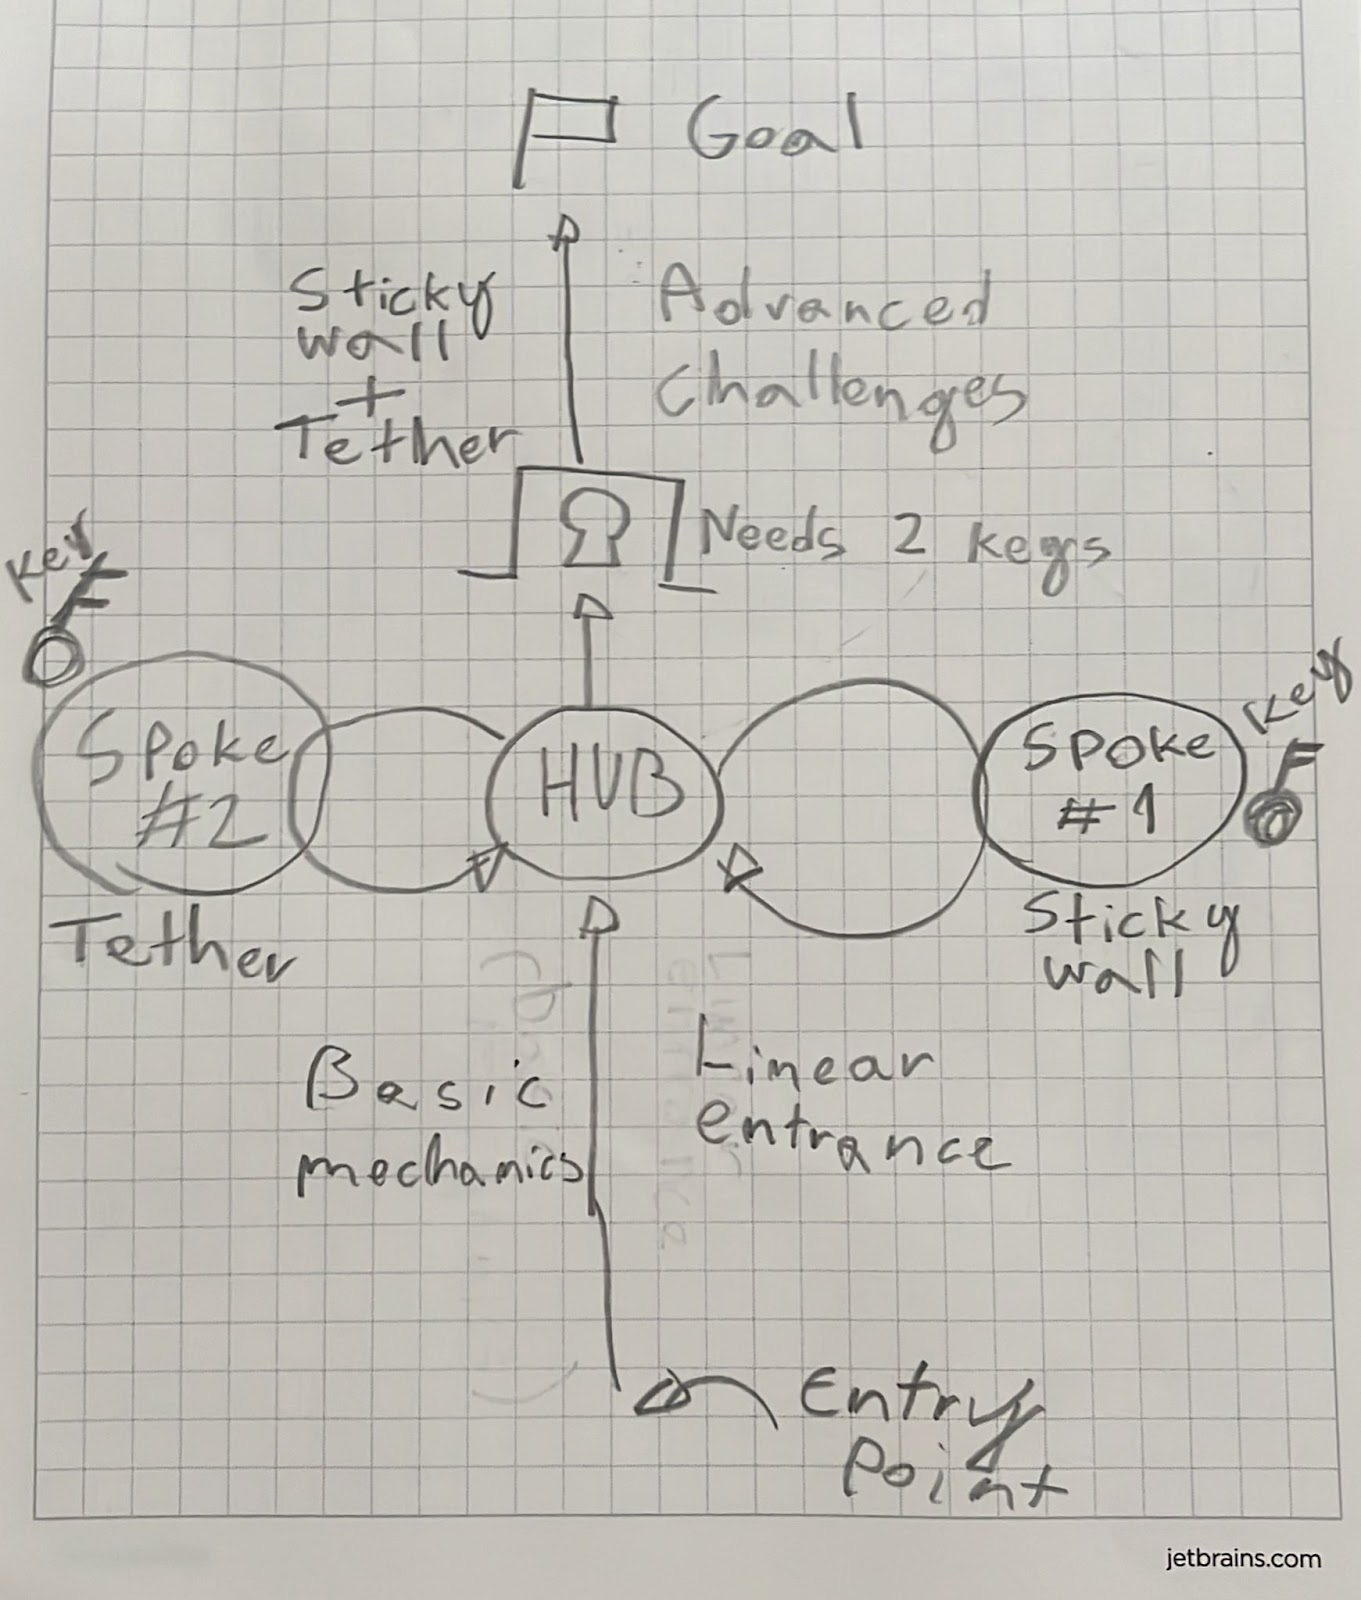 Goal
Sticky
wall
+
Tether
Advanced
Challenges
Needs 2 keys
Key
Spoke
#2
Tether
HUB
Key
Spoke
#1
Sticky
wall
Basic
mechanics
Linear
entrance
Entry
Point
jetbrains.com